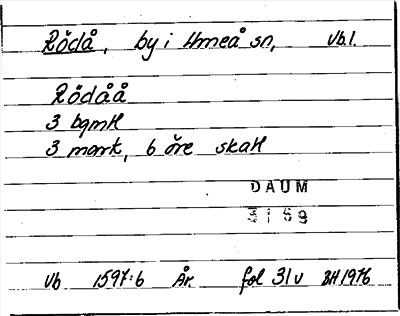 Rödå, by i Umeå sn, Vb.l.
Rödåå
3 bqmH
3 mark, 6 öre skatt
DAUM
3159
Vb 1597:6 År fol 31v BH 1976